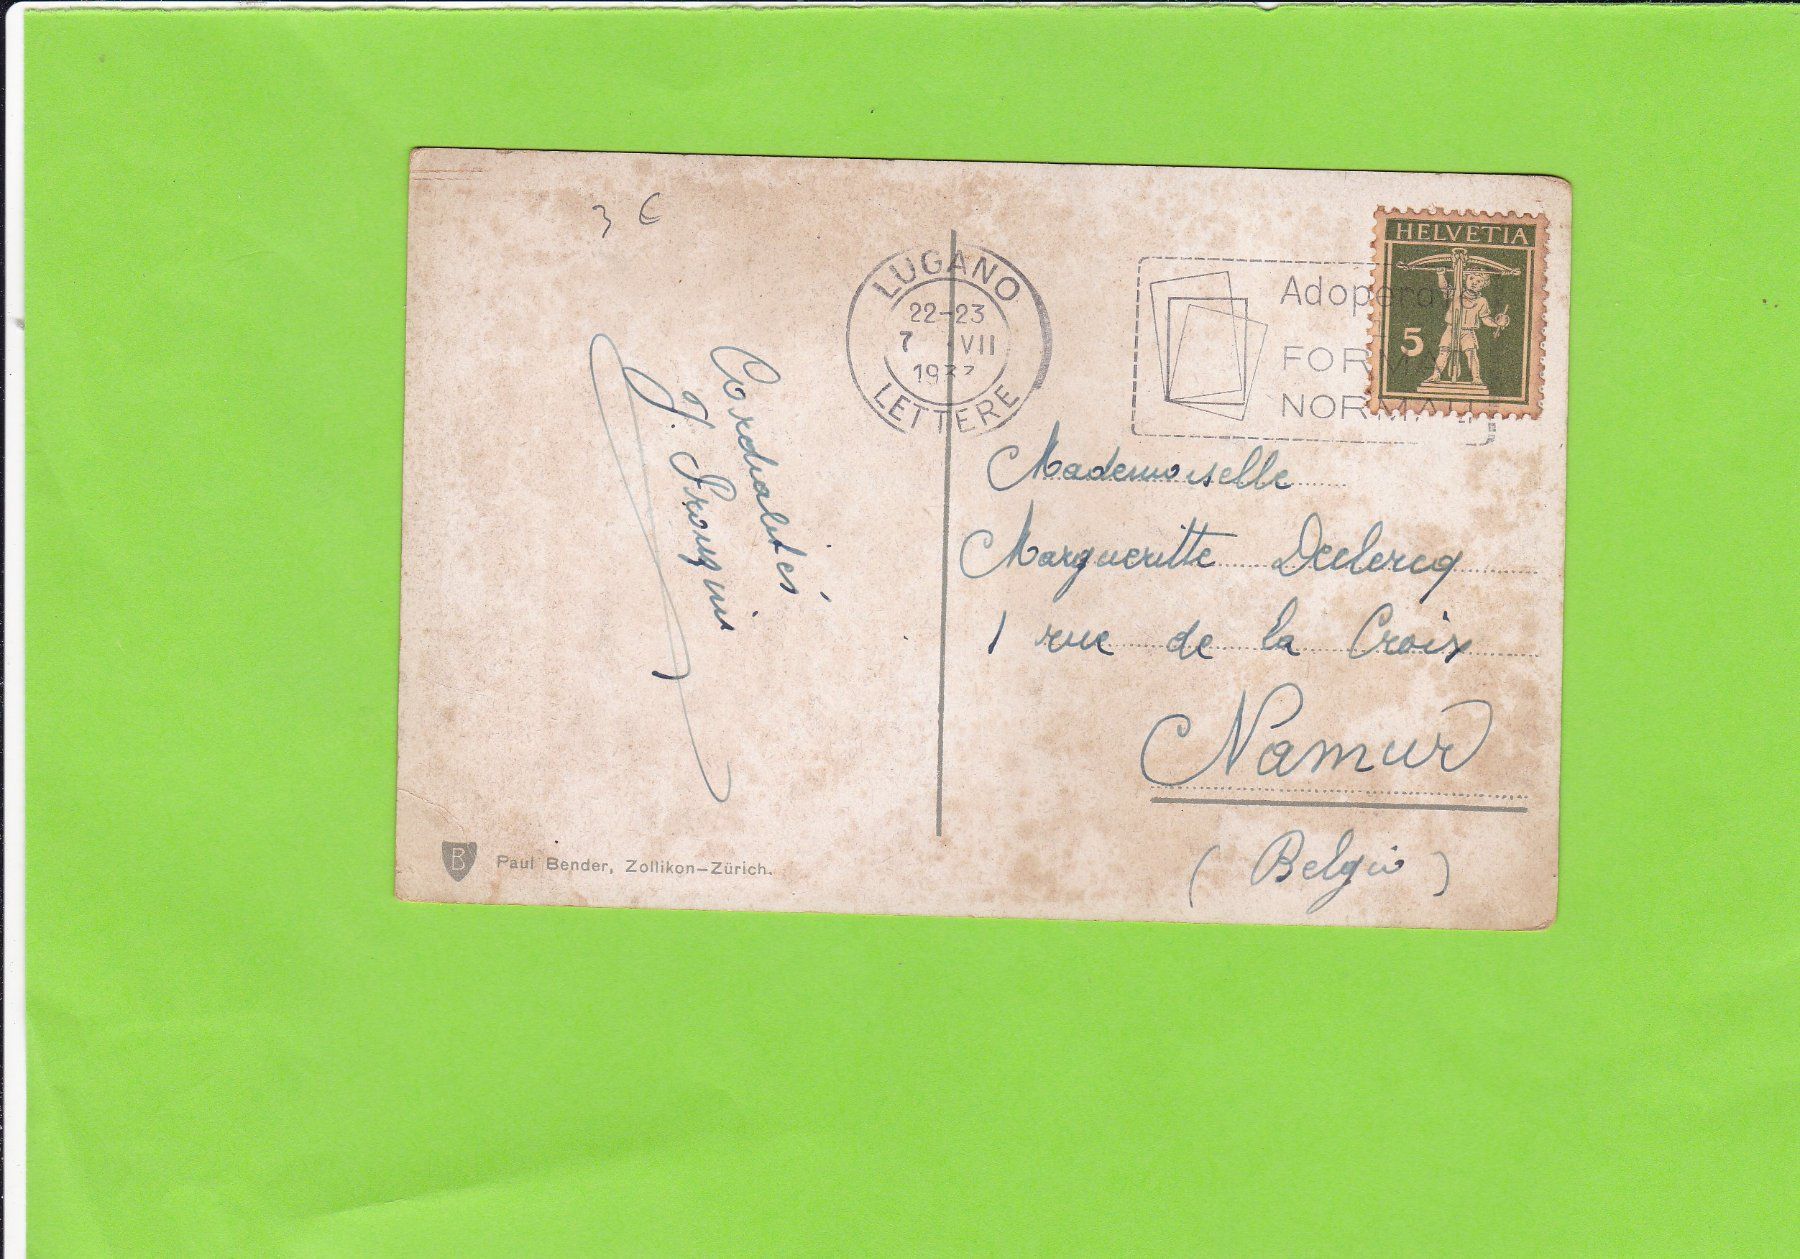 3 €
LUGANO
22-23
7 VII
193
LETTERE
Adoperate
FORMATI
NORMALI
HELVETIA
5
Cordialités
J.
Mademoiselle
Margueritte Declercq
1 rue de la Croix
Namur
(Belgio)
B
Paul Bender, Zollikon-Zürich.